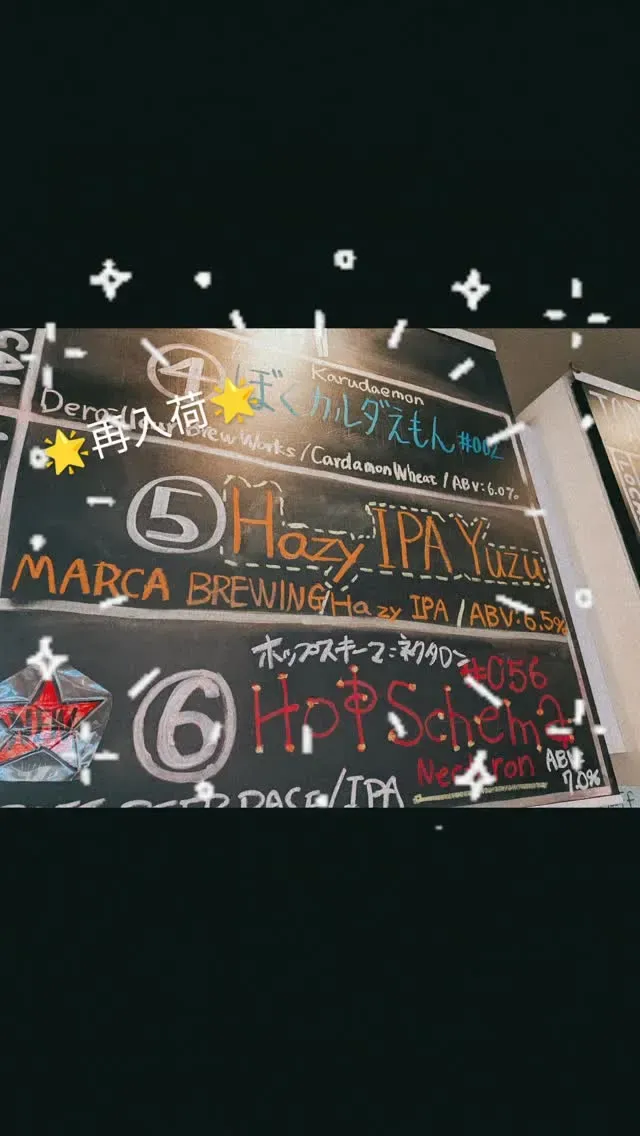 ④ ぼくカルダえもん #002
Karudaemon
🌟再入荷🌟
Brew Works / Cardamon Wheat / ABV: 6.0%
⑤ Hazy IPA Yuzu
MARCA BREWING / Hazy IPA / ABV: 6.5%
ホップスキーマ:ネクタロン
⑥ Hop Schema #056
Nectaron
ABV 7.0%
/ IPA